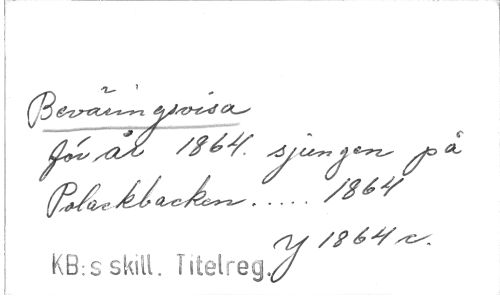 Beväringsvisa
för år 1864. sjungen på
Polackbacken ..... 1864
Y 1864 r.
KB:s skill. Titelreg.